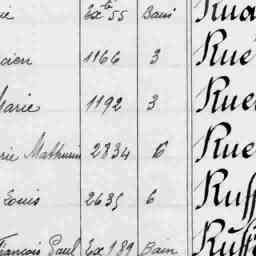 ie Ex^te 55 Bain Rua
cien 1166 3 Rue
Marie 1192 3 Rue
rie Mathurin 2834 6 Rue
Louis 2635 6 Ruff
François Paul Ex 189 Bain Ruff